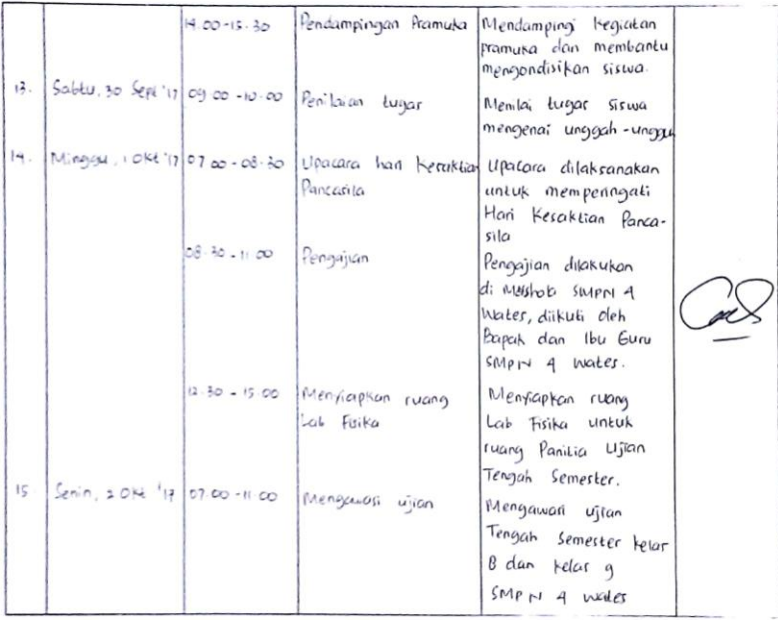 14.00-15.30 Pendampingan Pramuka Mendampingi kegiatan
pramuka dan membantu
mengondisikan siswa.
13. Sabtu, 30 Sept '17 09.00-10.00 Penilaian tugas Menilai tugas siswa
mengenai unggah-unggu
14. Minggu, 1 Okt '17 07.00-08.30 Upacara hari Kesaktian Upacara dilaksanakan
Pancasila untuk memperingati
Hari Kesaktian Panca-
sila
08.30-11.00 Pengajian Pengajian dilakukan
di SMPN 4
Wates, diikuti oleh
Bapak dan Ibu Guru
SMPN 4 Wates.
12.30-15.00 Menyiapkan ruang Menyiapkan ruang
Lab Fisika Lab Fisika untuk
ruang Panitia Ujian
Tengah Semester.
15. Senin, 2 Okt '17 07.00-11.00 Mengawasi ujian Mengawasi ujian
Tengah Semester kelas
8 dan kelas 9
SMPN 4 Wates